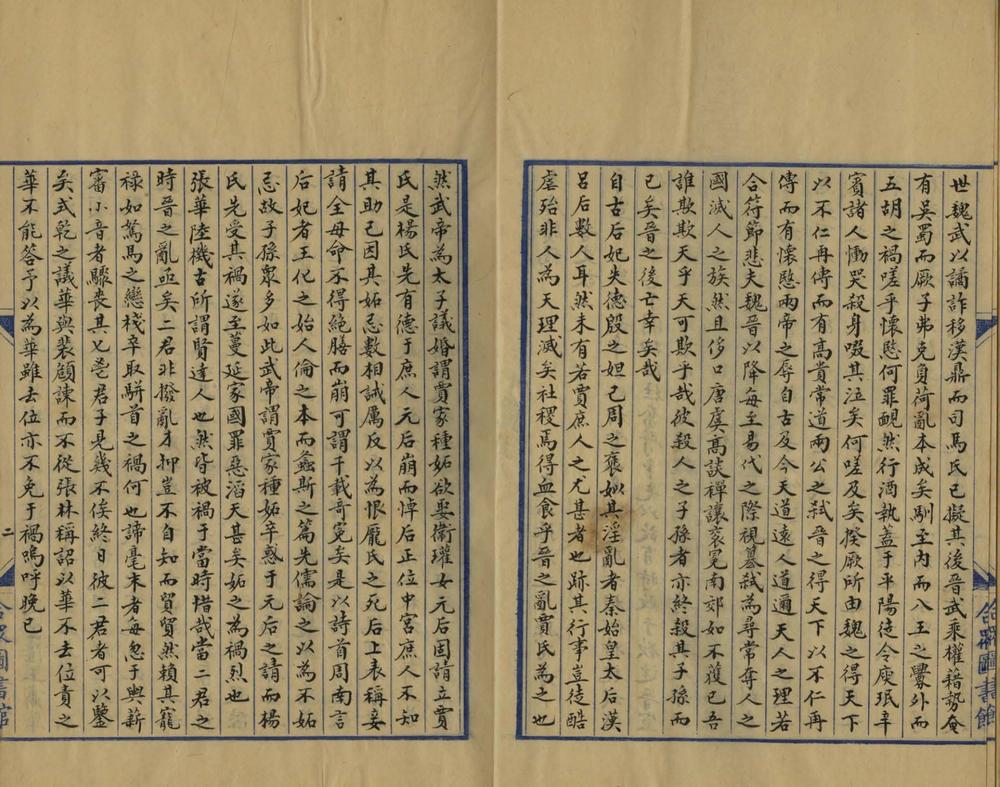 世魏武以譎詐移漢鼎而司馬氏已擬其後晉武乘權籍勢奄
有吳蜀而厥子弗克負荷亂本成矣馴至內而八王之釁外而
五胡之禍嗟乎懷愍何罪靦然行酒執蓋于平陽徒令庾珉辛
賓諸人慟哭殺身啜其泣矣何嗟及矣揆厥所由魏之得天下
以不仁再傳而有高貴常道兩公之弒晉之得天下以不仁再
傳而有懷愍兩帝之辱自古及今天道遠人道邇天人之理若
合符節悲夫魏晉以降每至易代之際視篡弒為尋常奪人之
國滅人之族然且侈口唐虞高談禪讓袞冕南郊如不獲已吾
誰欺欺天乎天可欺乎哉彼殺人之子孫者亦終殺其子孫而
已矣晉之後亡幸矣哉
自古后妃失德殷之妲己周之褒姒其淫亂者秦始皇太后漢
呂后數人耳然未有若賈庶人之尤甚者也跡其行事豈徒酷
虐殆非人為天理滅矣社稷焉得血食乎晉之亂賈氏為之也
然武帝為太子議婚謂賈家種妬欲娶衛瓘女元后固請立賈
氏是楊氏先有德于庶人元后崩而悼后正位中宮庶人不知
其助己因其妬忌數相誡厲反以為恨龐氏之死后上表稱妾
請全母命不得絕膳而崩可謂千載奇冤矣是以詩首周南言
后妃者王化之始人倫之本而螽斯之篇先儒論之以為不妬
忌故子孫眾多如此武帝謂賈家種妬辛惑于元后之請而楊
氏先受其禍遂至蔓延家國罪惡滔天甚矣妬之為禍烈也
張華陸機古所謂賢達人也然皆被禍于當時惜哉當二君之
時晉之亂亟矣二君非撥亂才抑豈不自知而貿貿然賴其寵
祿如駑馬之戀棧卒取駢首之禍何也諦毫末者每忽于輿薪
審小音者驟喪其匕鬯君子見幾不俟終日彼二君者可以鑒
矣式乾之議華與裴頠諫而不從張林稱詔以華不去位責之
華不能答予以為華雖去位亦不免于禍嗚呼晚已
二
合眾圖書館
合眾圖書館